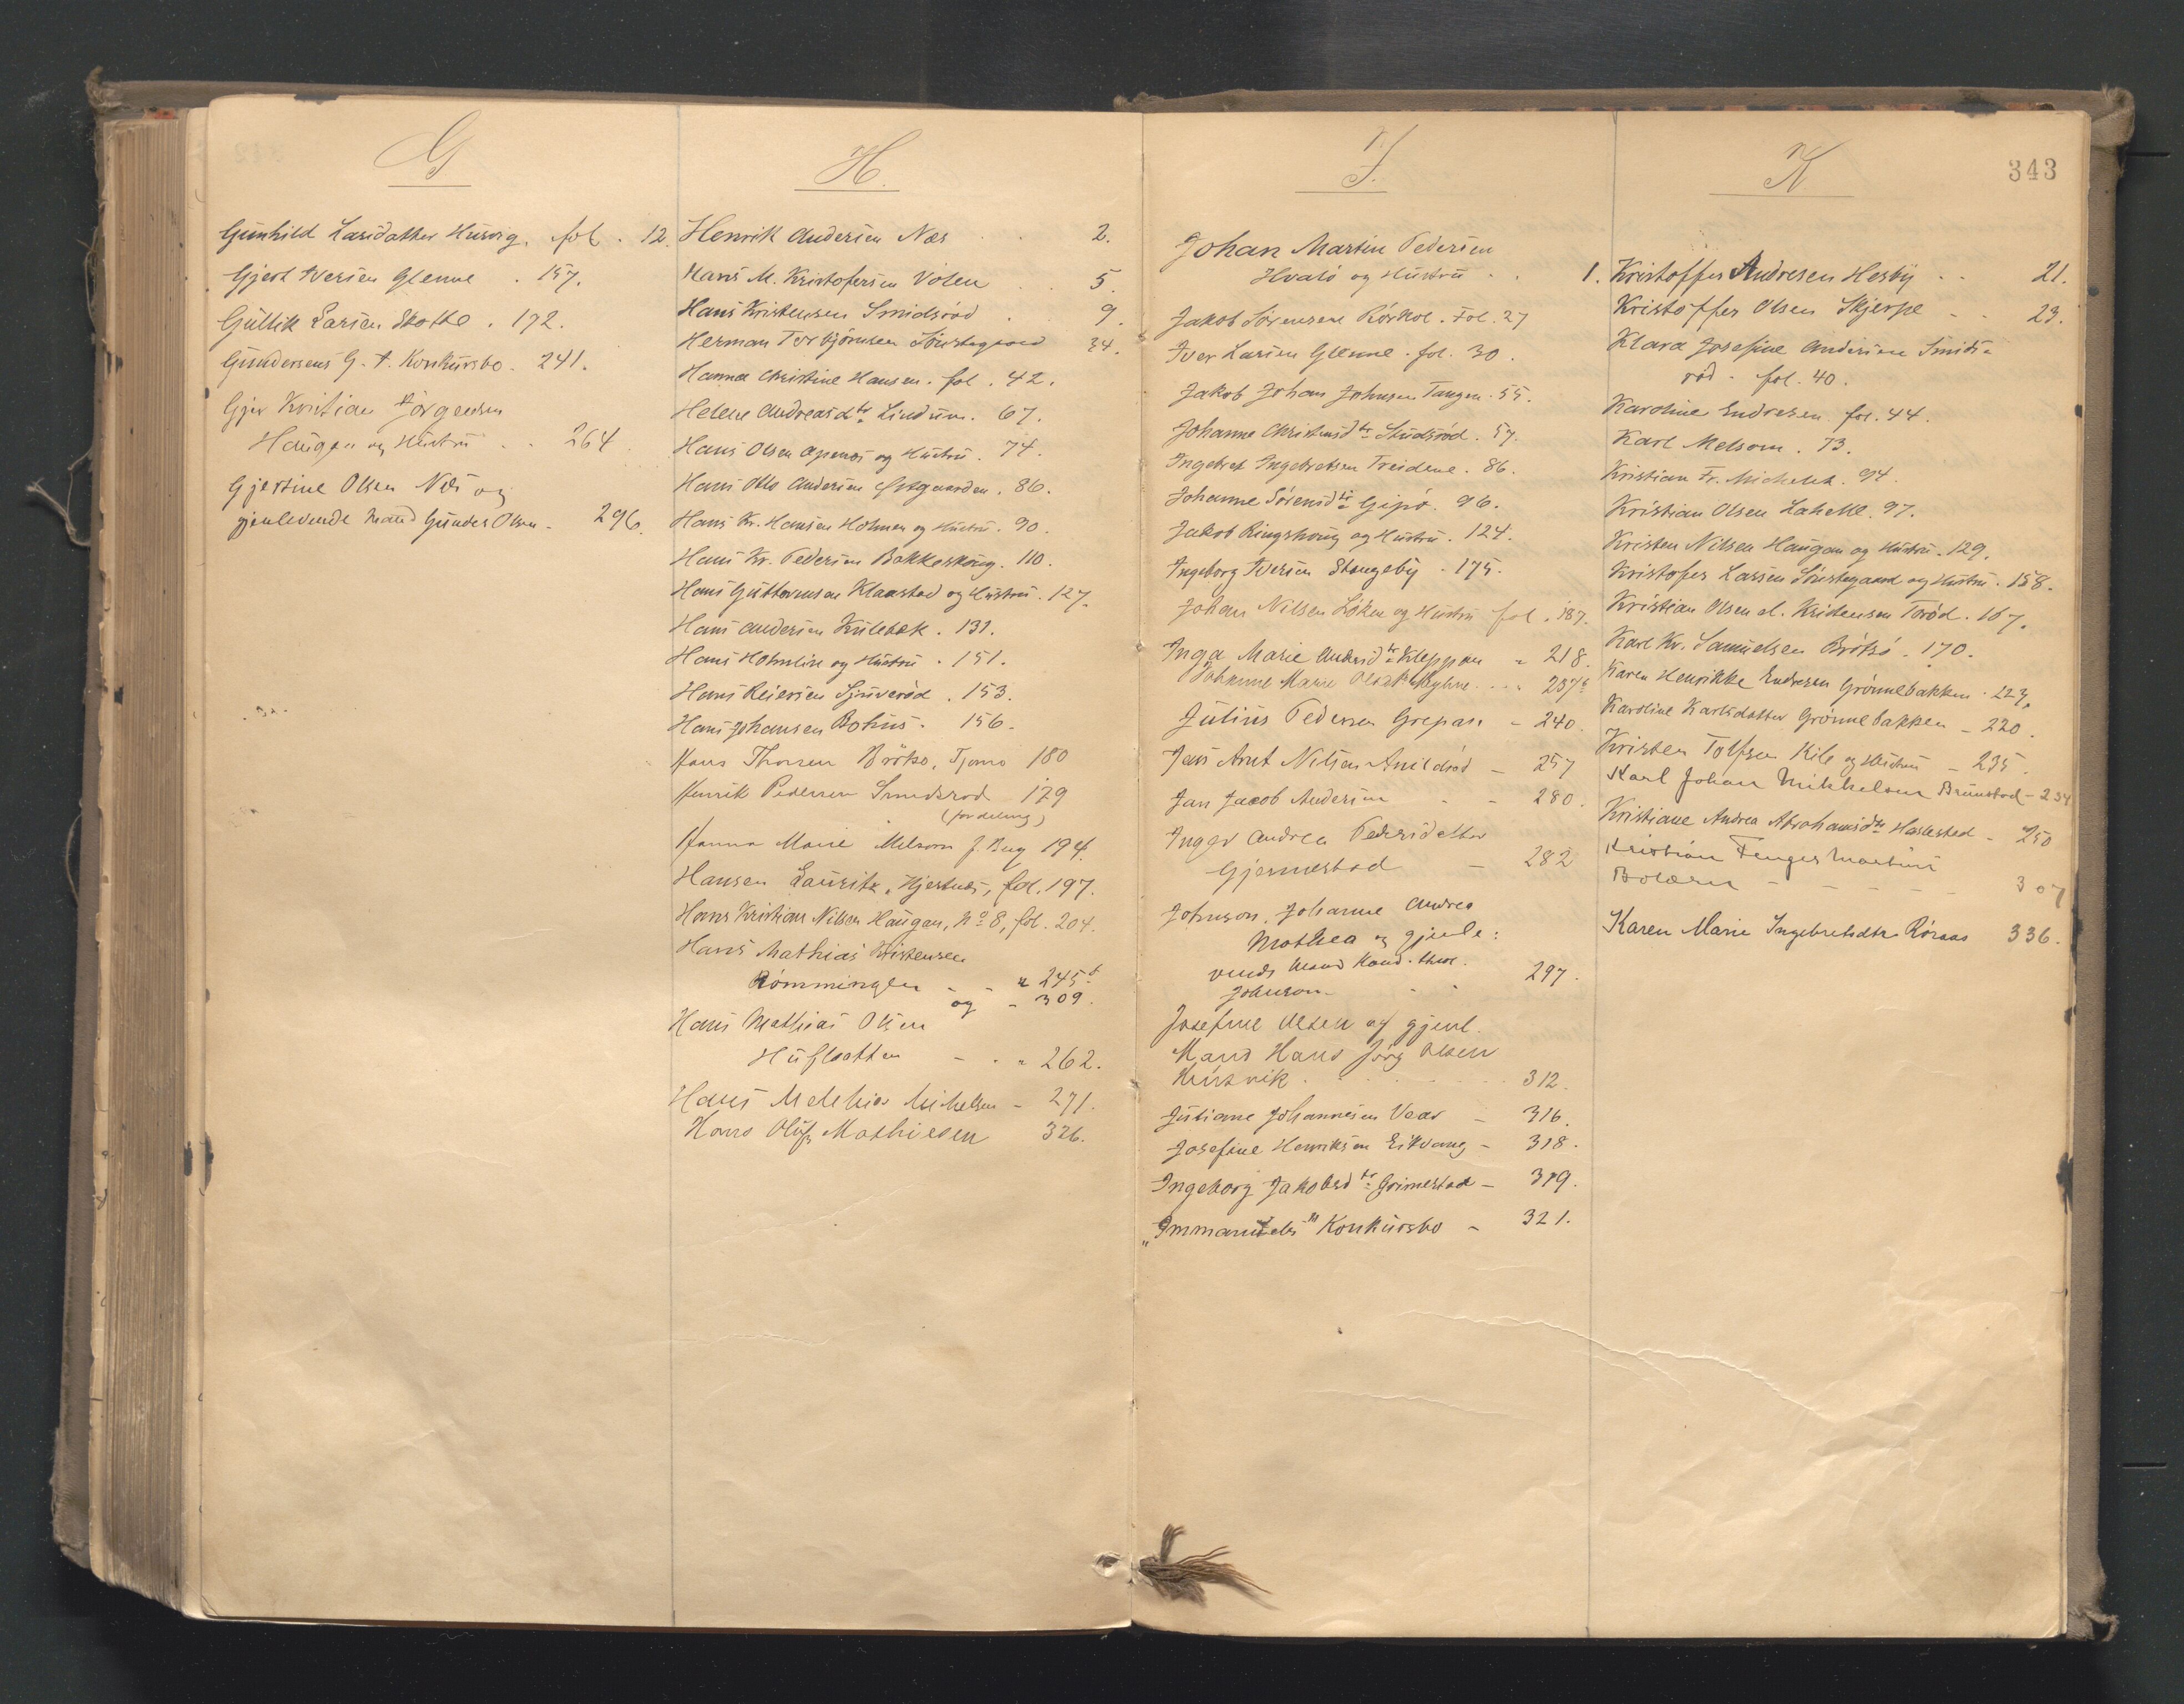 G
Gunhild Larsdatter Husvig. fol. 12.
Gjert Iversen Glenne . 157.
Gullik Larsen Skotte . 172.
Gundersens G. A. Konkursbo. 241.
Gjer Kristian Jørgensen
Haugan og Hustru . . 264.
Gjertine Olsen Næs og
gjenlevende Mand Gunder Olsen - 296.
H.
Henrik Andersen Næs . . 2.
Hans M. Kristofersen Volen . . 5.
Hans Kristensen Smidsrød . 9.
Herman Torbjørnsen Sørstegaard 34.
Hanna Christine Hansen. fol. 42.
Helene Andreasdtr Lindrum. 67.
Hans Olsen Apenes og Hustru . 74.
Hans Otto Andersen Østgaarden . 86.
Hans Kr. Hansen Holmen og Hustru. 90.
Hans Kr. Pedersen Bakkeskoug. 110.
Hans Guttormsen Klaastad og Hustru. 127.
Hans Andersen Kulebæk . 131.
Hans Holmsen og Hustru . 151.
Hans Reiersen Sjuverød . 153.
Hans Johansen Bohus . 156.
Hans Thorsen Brøtsø, Tjømø 180
Henrik Pedersen Smidsrød 179
(fordeling)
Hanna Marie Melsom f. Bug 194.
Hansen Lauritz, Hjertnes, fol. 197.
Hans Kristian Nilsen Haugan, No 8, fol. 204.
Hans Mathias Kristensen
Rømmingen - - " 245b
og - 309.
Hans Mathias Olsen
- . " 262.
Hans Mathias Mikelsen - 271.
Hans Oluf Mathiesen 326.
I.
Johan Martin Pedersen
Hvalø og Hustru . . 1.
Jakob Sørensen Røskol. Fol. 27
Iver Larsen Glenne . fol. 30.
Jakob Johan Johnsen Tangen. 55.
Johanne Christensdtr Studsrød . 57.
Ingebret Ingebretsen Treidene . 86.
Johanne Sørensdtr Gipø. 96.
Jakob Ringshoug og Hustru . 124.
Ingeborg Iversen Stangeby . 175.
Johan Nilsen Løken og Hustru fol. 187.
Inga Marie Andrsdtr Kleppan " 218.
Johanne Marie Olsdtr Myhre . . . 237b
Julius Pedersen Grepan - 240.
Jens Arnt Nilsen Smidsrød - 257
Jan Jacob Andersen - - 280.
Inger Andrea Pedersdatter
Gjennestad - 282
Johnson, Johanne Andrea
Mathea og gjenle:
vende Mand Kand. theol.
Johnson - - 297.
Josefine Olsen og gjenl.
Mand Hans Jörg Olsen
Husvik . . . . . 312.
Juliane Johannesen Vear - 316.
Josefine Henriksen Eikvang - 318.
Ingeborg Jakobsdtr Grimestad - 319.
"Immanuels" Konkursbo - 321.
K
343
Kristoffer Andresen Hesby . . 21.
Kristoffer Olsen Skjerpe - . 23.
Klara Josefine Andersen Smids-
rød . fol. 40.
Karoline Endresen. fol. 44.
Karl Melsom . 73.
Kristian Fr. Michelet. 94.
Kristian Olsen Lahelle. 97.
Kristen Nilsen Haugan og Hustru. 129.
Kristofer Larsen Sørstegaard og Hustru. 158.
Kristian Olsen el. Kristensen Torød. 167.
Karl Kr. Samuelsen Brøtsø . 170.
Karen Henrikke Endresen Grønnebakken . 223.
Karoline Karlsdatter Grønnebakken - 220.
Kristen Tolfsen Kile og Hustru - 235.
Karl Johan Mikkelsen Brunstad - 234
Kristiane Andrea Abrahamsdtr Haslestad - 250
Kristian Fenger Martini
Bolærn - - - - - 307
Karen Marie Ingebretsdtr Røraas 336.